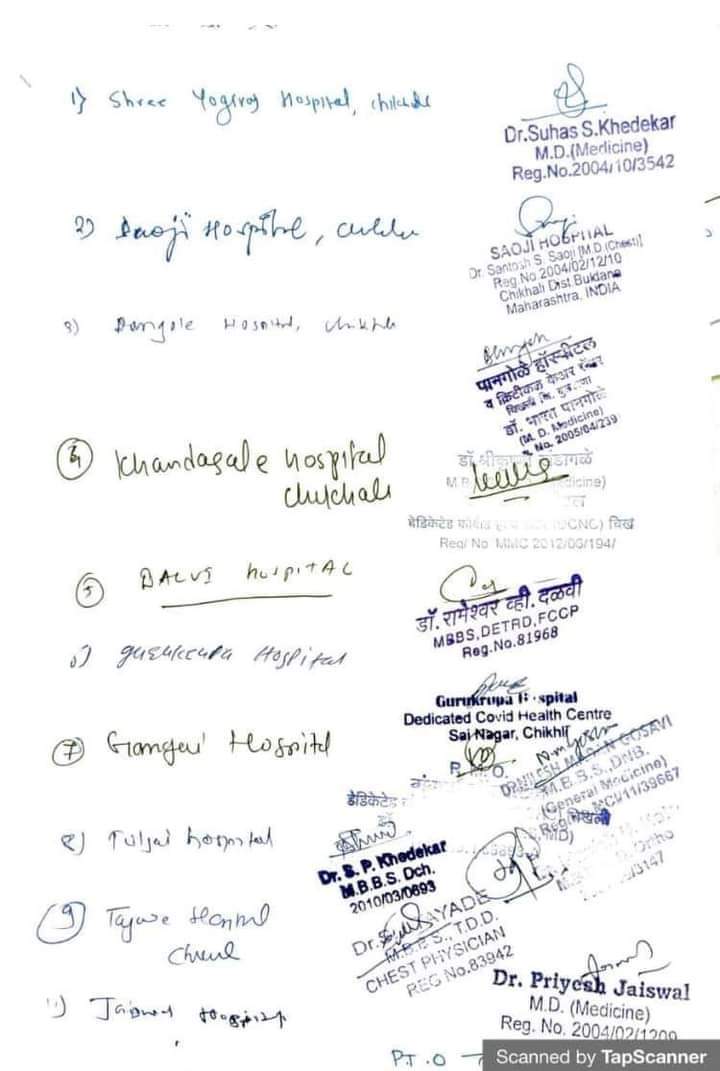 1) Shree Yogiraj Hospital, Chikhli
Dr.Suhas S.Khedekar
M.D.(Medicine)
Reg.No.2004/10/3542
2) Saoji Hospital,
SAOJI HOSPITAL
Dr. Santosh S. Saoji [M.D.(Chest)]
Reg.No.2004/02/12/10
Chikhali Dist.Buldana
Maharashtra, INDIA
3) Hospital, Chikhli
पानगोळे हॉस्पीटल
व क्रिटीकल केअर सेंटर
डॉ. भारत पानगोळे
(M. D. Medicine)
No. 2005/04/239
4) Khandagale hospital
Chikhali
मेडिकेटेड (DCNC) चिख
Reg/ No MMC 2012/06/194/
5) DALVI HOSPITAL
डॉ.रामेश्वर व्ही.दळवी
MBBS,DETRD,FCCP
Reg.No.81968
gurukrupa Hospital
Gurukrupa Hospital
Dedicated Covid Health Centre
Sai Nagar, Chikhli
R.M.O.
7) Gangai Hospital
DR.NILESH GOSAVI
M.B.B.S.,DNB.
(General Medicine)
Reg. MCI/11/39667
डेडिकेटेड
8) Tuljai hospital
Dr. S. P. Khedekar
M.B.B.S. Dch.
2010/03/0693
Ortho
/3147
9) Tayade
Dr. TAYADE
M.B.B.S., T.D.D.
CHEST PHYSICIAN
REG No.83942
Jaiswal Hospital
Dr. Priyesh Jaiswal
M.D. (Medicine)
Reg. No. 2004/02/1209
P.T.O
Scanned by TapScanner